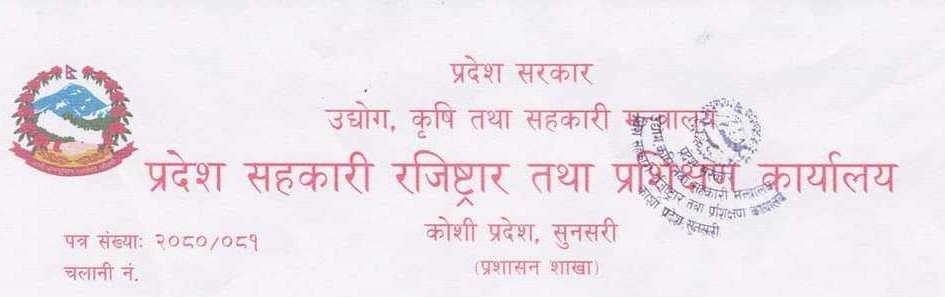 प्रदेश सरकार
उद्योग, कृषि तथा सहकारी मन्त्रालय
प्रदेश सहकारी रजिष्ट्रार तथा प्रशिक्षण कार्यालय
कोशी प्रदेश, सुनसरी
(प्रशासन शाखा)
पत्र संख्याः २०८०/०८१
चलानी नं.
प्रदेश सरकार
सहकारी मन्त्रालय
रजिष्ट्रार तथा प्रशिक्षण कार्यालय
कोशी प्रदेश, सुनसरी